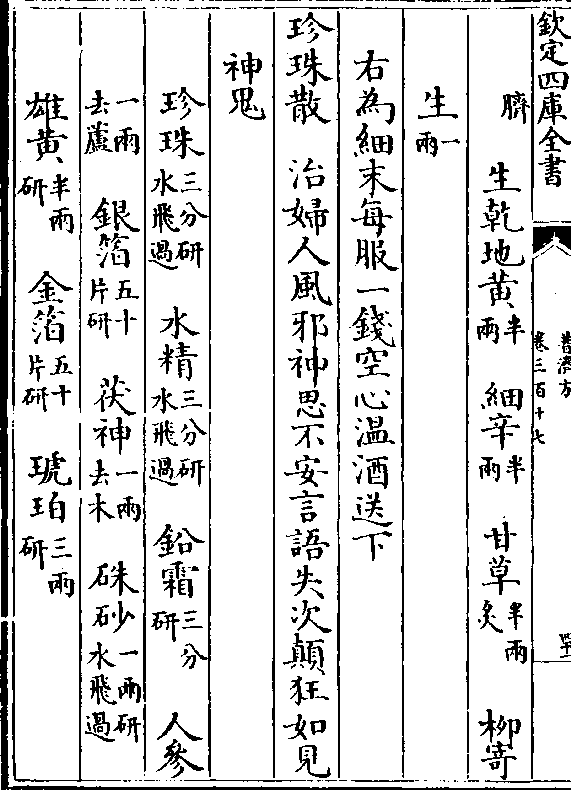 欽定四庫全書
普濟方
卷三百十七
臍　生乾地黃半兩　細辛半兩　甘草半兩炙　柳寄
生一兩
右為細末每服一錢空心溫酒送下
珍珠散　治婦人風邪神思不安言語失次顛狂如見
神鬼
珍珠三分研水飛過　水精三分研水飛過　鉛霜三分研　人參
一兩去蘆　銀箔五十片研　茯神一兩去木　硃砂一兩研水飛過
雄黃半兩研　金箔五十片研　琥珀三兩研